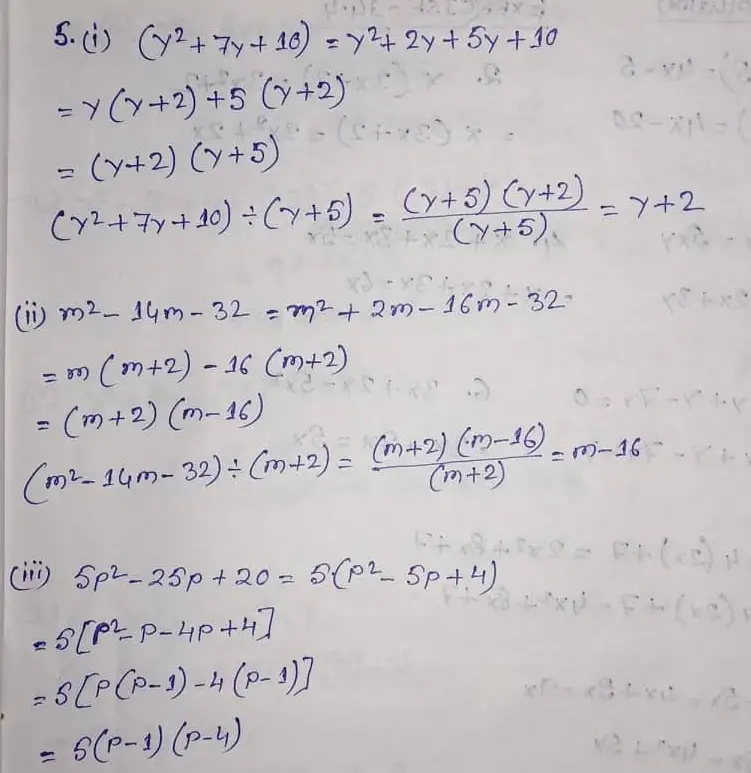 5. (i) (y² + 7y + 10) = y² + 2y + 5y + 10
= y (y+2) + 5 (y+2)
= (y+2) (y+5)
(y² + 7y + 10) ÷ (y+5) = (y+5) (y+2) / (y+5) = y+2
(ii) m² - 14m - 32 = m² + 2m - 16m - 32
= m (m+2) - 16 (m+2)
= (m+2) (m-16)
(m² - 14m - 32) ÷ (m+2) = (m+2) (m-16) / (m+2) = m-16
(iii) 5p² - 25p + 20 = 5(p² - 5p + 4)
= 5[p² - p - 4p + 4]
= 5[p(p-1) - 4(p-1)]
= 5(p-1) (p-4)